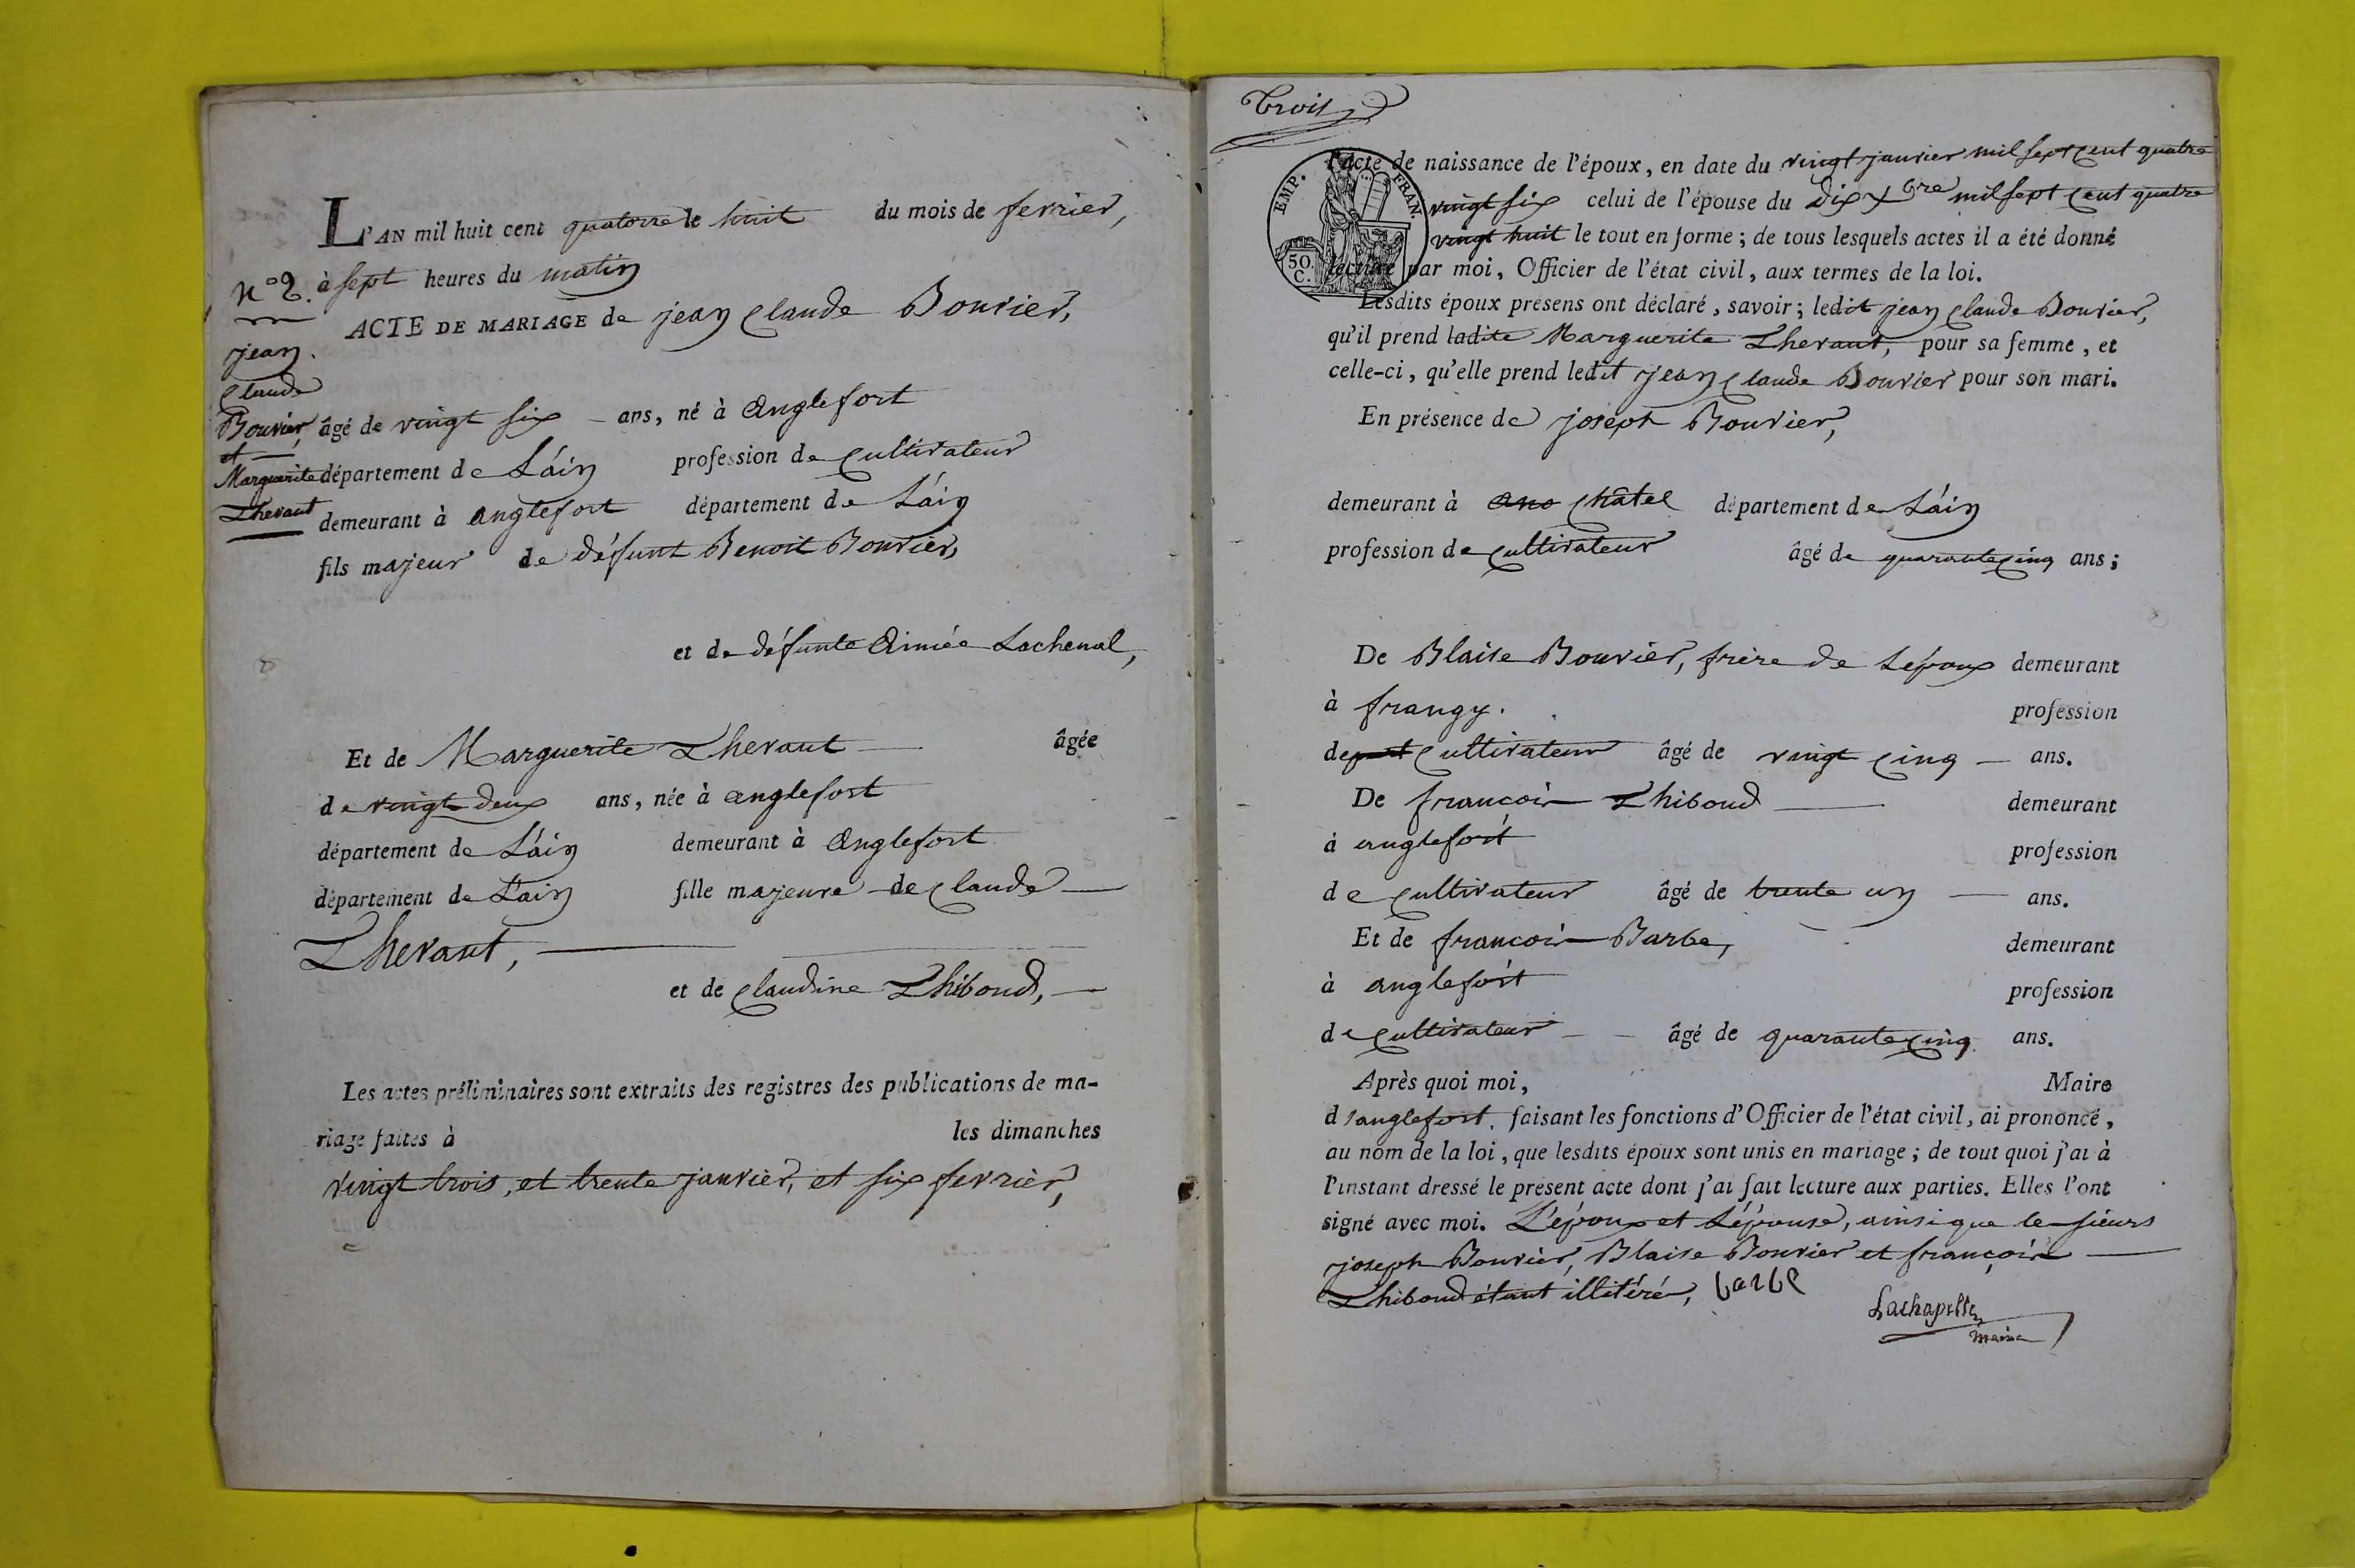 L'AN mil huit cent quatorze le huit du mois de fevrier,
à sept heures du matin
N.° 2.
ACTE DE MARIAGE de jean Claude Bouvier,
jean
Claude
Bouvier,
et
Marguerite
Thevant
âgé de vingt six ans, né à anglefort
département de L'áin profession de Cultivateur
demeurant à anglefort département de L'áin
fils majeur de défunt Benoit Bouvier,
et de défunte Aimée Lachenal,
Et de Marguerite Thevant âgée
de vingt deux ans, née à anglefort
département de L'áin demeurant à anglefort
département de L'ain fille majeure de Claude
Thevant,
et de Claudine Thiboud,
Les actes préliminaires sont extraits des registres des publications de ma-
riage faites à les dimanches
vingt trois, et trente janvier, et six fevrier,
Trois
l'acte de naissance de l'époux, en date du vingt janvier mil sept cent quatre
vingt six celui de l'épouse du dix Xbre mil sept cent quatre
vingt huit le tout en forme; de tous lesquels actes il a été donné
lecture par moi, Officier de l'état civil, aux termes de la loi.
EMP. FRAN.
50.
C.
Lesdits époux présens ont déclaré, savoir; ledit jean Claude Bouvier,
qu'il prend ladite Marguerite Thevant, pour sa femme, et
celle-ci, qu'elle prend ledit jean Claude Bouvier pour son mari.
En présence de joseph Bouvier,
demeurant à Châtel département de L'áin
profession de Cultivateur âgé de quarante Cinq ans;
De Blaise Bouvier, frère de L'époux demeurant
à frangy. profession
de Cultivateur âgé de vingt Cinq ans.
De francois Thiboud demeurant
à anglefort profession
de Cultivateur âgé de trente un ans.
Et de francois Barbe, demeurant
à anglefort profession
de Cultivateur âgé de quarante Cinq ans.
Après quoi moi, Maire
d'anglefort. faisant les fonctions d'Officier de l'état civil, ai prononcé,
au nom de la loi, que lesdits époux sont unis en mariage; de tout quoi j'ai à
l'instant dressé le présent acte dont j'ai fait lecture aux parties. Elles l'ont
signé avec moi. L'époux et L'épouse, ainsi que le sieurs
joseph Bouvier, Blaise Bouvier et françois
Thiboud étant illitéré, barbe
Lachapelle
maire